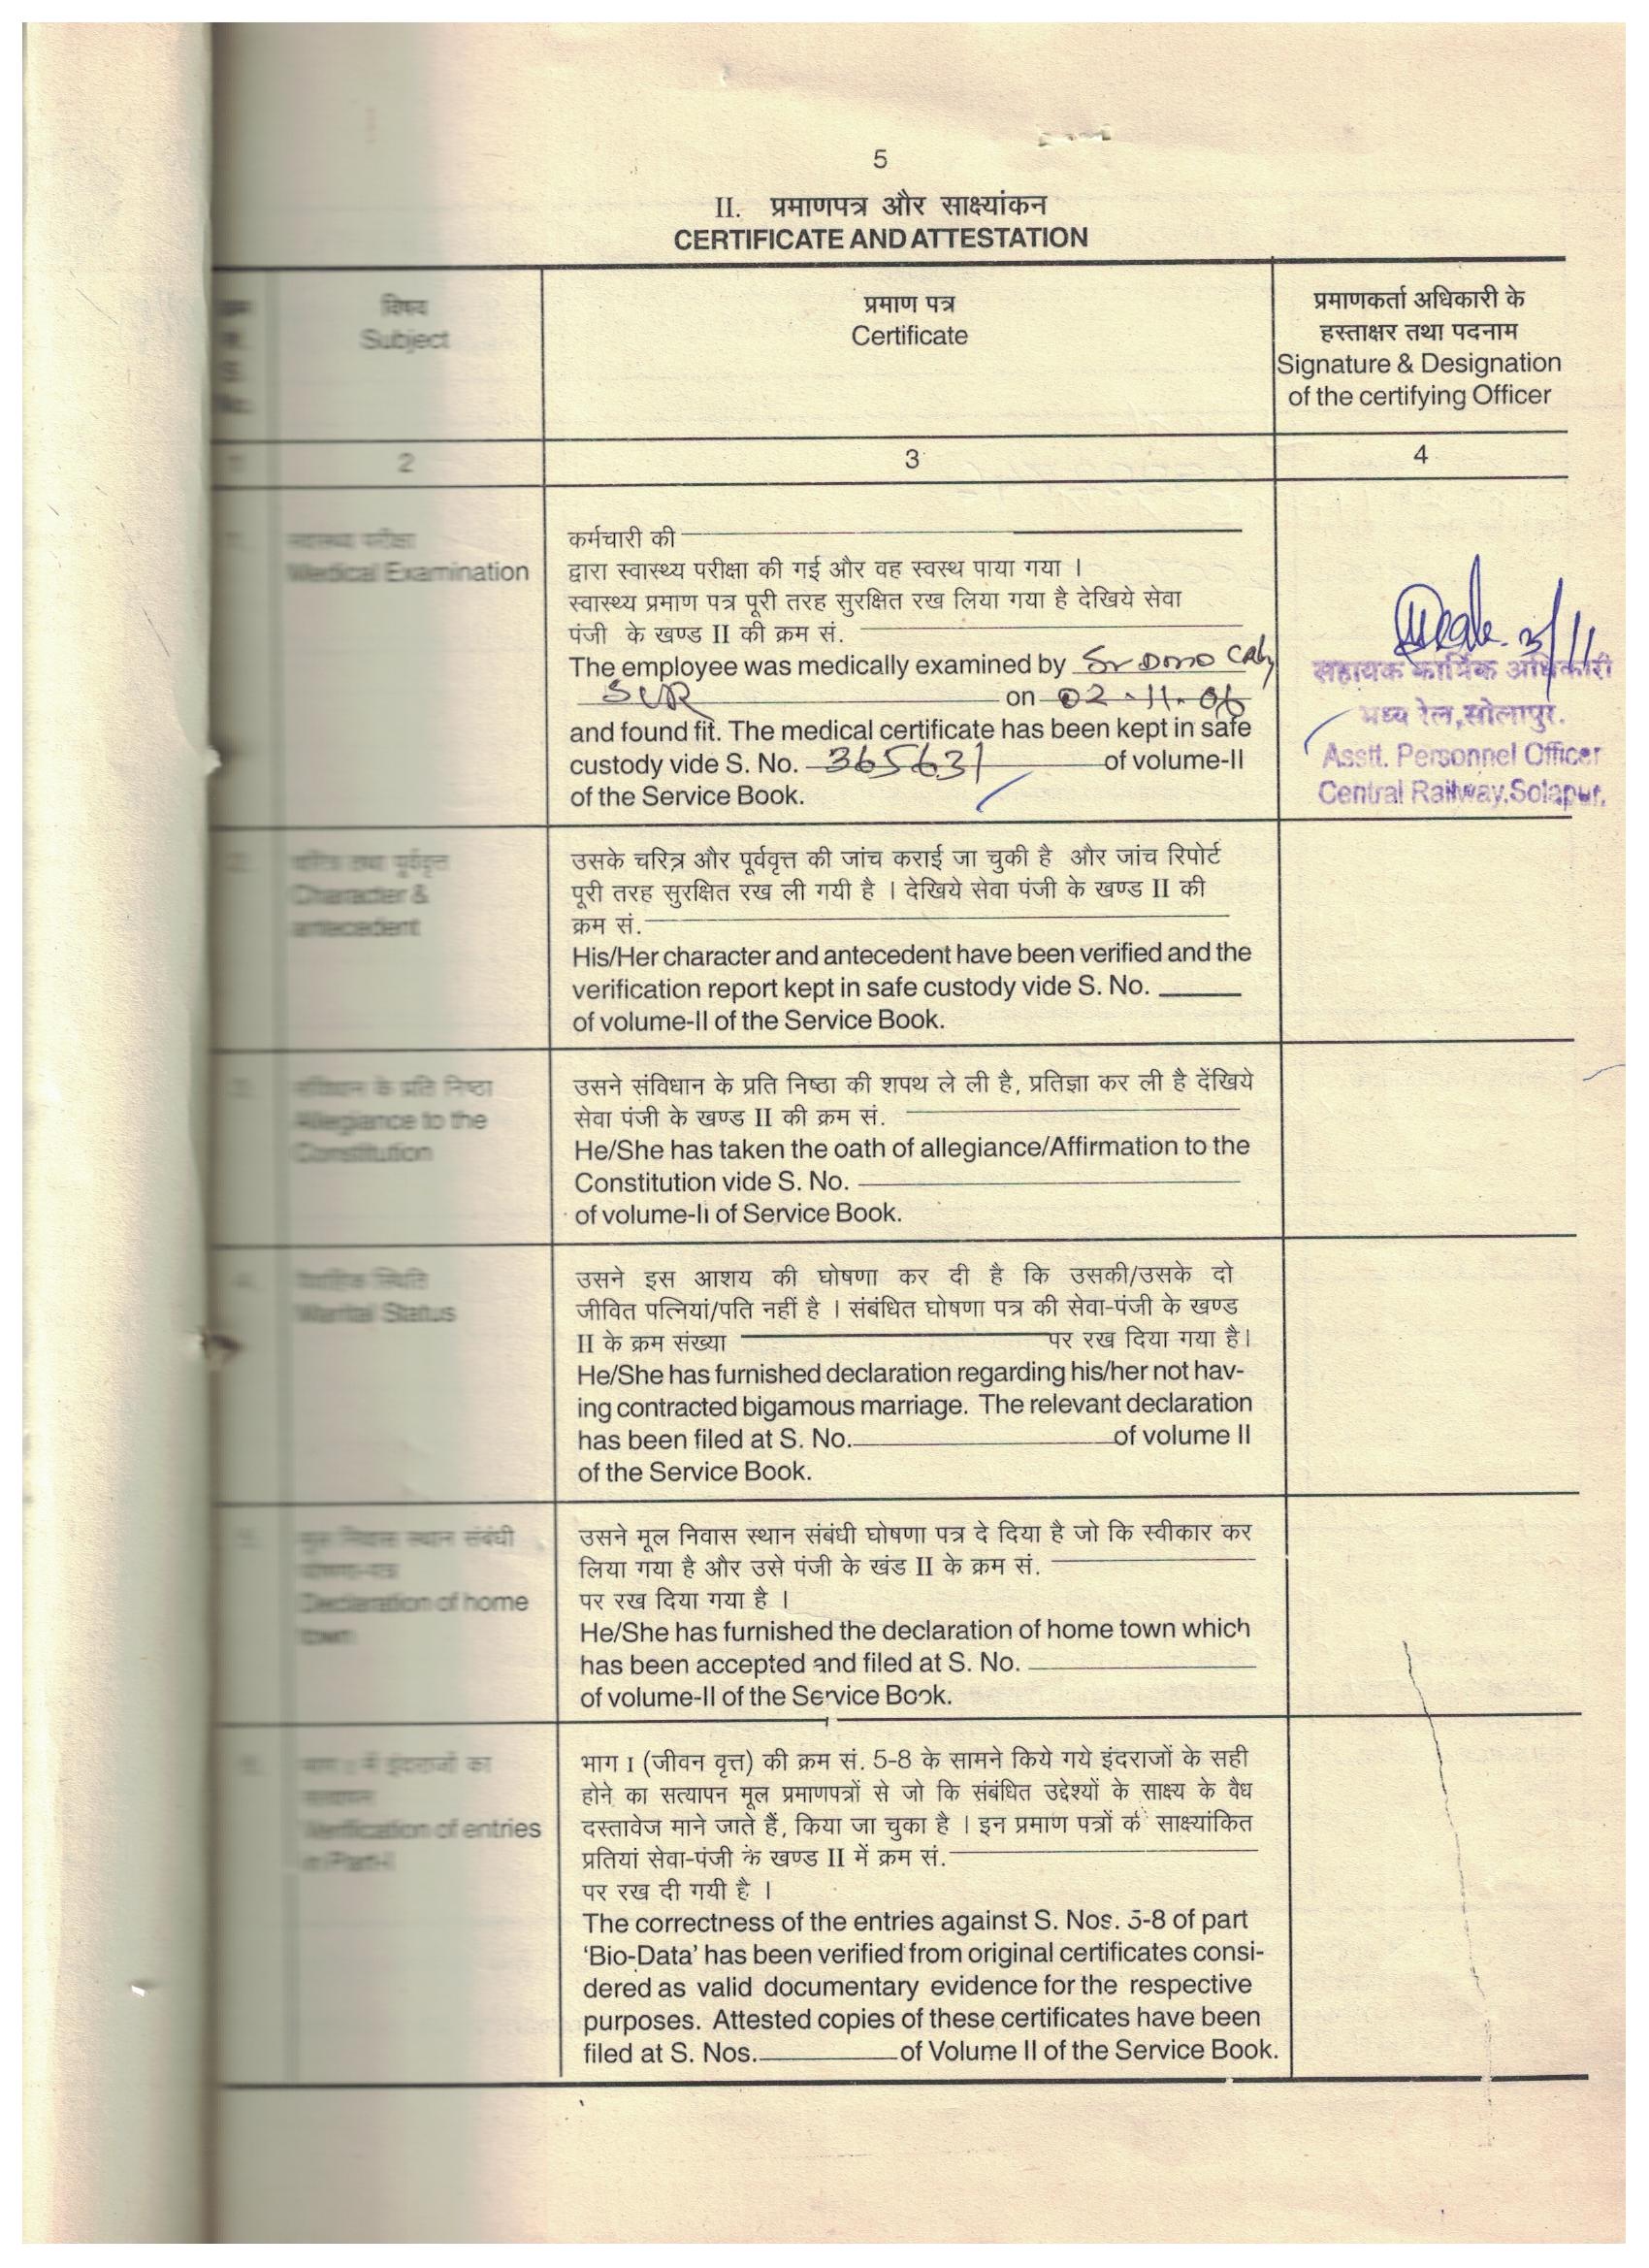 5
II. प्रमाणपत्र और साक्ष्यांकन
CERTIFICATE AND ATTESTATION
विषय
Subject
प्रमाण पत्र
Certificate
प्रमाणकर्ता अधिकारी के
हस्ताक्षर तथा पदनाम
Signature & Designation
of the certifying Officer
2
3
4
स्वास्थ्य परीक्षा
Medical Examination
कर्मचारी की
द्वारा स्वास्थ्य परीक्षा की गई और वह स्वस्थ पाया गया ।
स्वास्थ्य प्रमाण पत्र पूरी तरह सुरक्षित रख लिया गया है देखिये सेवा
पंजी के खण्ड II की क्रम सं.
The employee was medically examined by Sr DMO
SUR on 02-11-06
and found fit. The medical certificate has been kept in safe
custody vide S. No. 365631 of volume-II
of the Service Book.
3/11
सहायक कार्मिक अधिकारी
मध्य रेल,सोलापुर.
Asstt. Personnel Officer
Central Railway,Solapur.
चरित्र तथा पूर्ववृत्त
Character &
antecedent
उसके चरित्र और पूर्ववृत्त की जांच कराई जा चुकी है और जांच रिपोर्ट
पूरी तरह सुरक्षित रख ली गयी है । देखिये सेवा पंजी के खण्ड II की
क्रम सं.
His/Her character and antecedent have been verified and the
verification report kept in safe custody vide S. No.
of volume-II of the Service Book.
संविधान के प्रति निष्ठा
Allegiance to the
Constitution
उसने संविधान के प्रति निष्ठा की शपथ ले ली है, प्रतिज्ञा कर ली है देंखिये
सेवा पंजी के खण्ड II की क्रम सं.
He/She has taken the oath of allegiance/Affirmation to the
Constitution vide S. No.
of volume-II of Service Book.
स्थिति
Marital Status
उसने इस आशय की घोषणा कर दी है कि उसकी/उसके दो
जीवित पत्नियां/पति नहीं है । संबंधित घोषणा पत्र की सेवा-पंजी के खण्ड
II के क्रम संख्या पर रख दिया गया है।
He/She has furnished declaration regarding his/her not hav-
ing contracted bigamous marriage. The relevant declaration
has been filed at S. No. of volume II
of the Service Book.
मूल निवास स्थान संबंधी
घोषणा-पत्र
Declaration of home
town
उसने मूल निवास स्थान संबंधी घोषणा पत्र दे दिया है जो कि स्वीकार कर
लिया गया है और उसे पंजी के खंड II के क्रम सं.
पर रख दिया गया है ।
He/She has furnished the declaration of home town which
has been accepted and filed at S. No.
of volume-II of the Service Book.
भाग I में इंदराजों का
सत्यापन
Verification of entries
in Part-I
भाग I (जीवन वृत्त) की क्रम सं. 5-8 के सामने किये गये इंदराजों के सही
होने का सत्यापन मूल प्रमाणपत्रों से जो कि संबंधित उद्देश्यों के साक्ष्य के वैध
दस्तावेज माने जाते हैं, किया जा चुका है । इन प्रमाण पत्रों के साक्ष्यांकित
प्रतियां सेवा-पंजी के खण्ड II में क्रम सं.
पर रख दी गयी है ।
The correctness of the entries against S. Nos. 5-8 of part
‘Bio-Data’ has been verified from original certificates consi-
dered as valid documentary evidence for the respective
purposes. Attested copies of these certificates have been
filed at S. Nos. of Volume II of the Service Book.